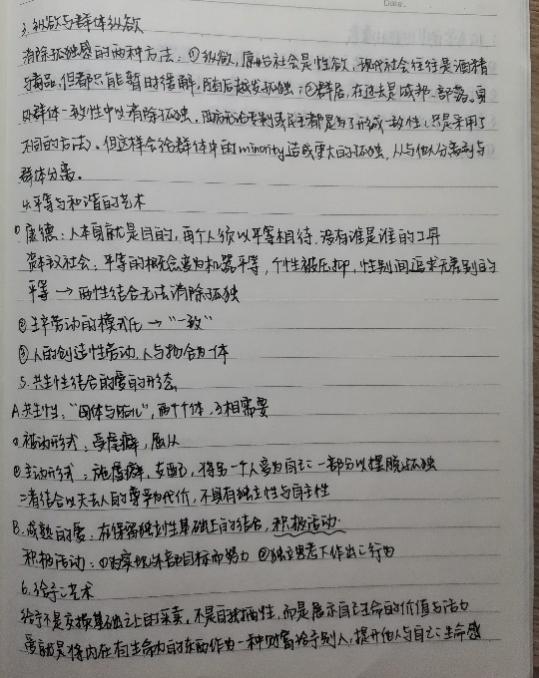 3. 纵欲与群体纵欲
消除孤独感的两种方法：①纵欲，原始社会是性欲，现代社会往往是酒精
与毒品，但都只能暂时缓解，随后越发孤独；②群居，在过去是城邦、部落。
处群体一致性中以消除孤独，政府无论专制或民主都是为了形成一致性（只是采用了
不同的方法）。但这样会给群体中的minority造成更大的孤独，从与他人分离到与
群体分离。
4. 平等与和谐的艺术
① 康德：人本身就是目的，两个人须以平等相待，没有谁是谁的工具
资本主义社会：平等的概念变为机器平等，个性被压抑，性别间追求无差别的
平等 → 两性结合无法消除孤独
② 生产劳动的模式化 → “一致”
③ 人的创造性劳动，人与物合为一体
5. 共生性结合的爱的形态
A. 共生性：“母体与胎儿”，两个个体，互相需要
① 被动形式：受虐癖，屈从
② 主动形式：施虐癖，支配，将另一个人变为自己一部分以摆脱孤独
二者结合以失去人的尊严为代价，不具有独立性与自主性
B. 成熟的爱：在保留独立性基础上的结合，积极活动
积极活动：①为实现外部目标而努力 ②独立思考下作出行为
6. 给予之艺术
给予不是交换基础之上的买卖，不是自我牺牲，而是展示自己生命的价值与活力
爱就是将内在有生命力的东西作为一种财富给予别人，提升他人与自己生命感